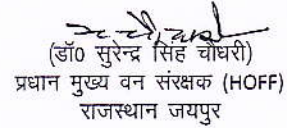 (डॉ0 सुरेन्द्र सिंह चौधरी)
प्रधान मुख्य वन संरक्षक (HOFF)
राजस्थान जयपुर